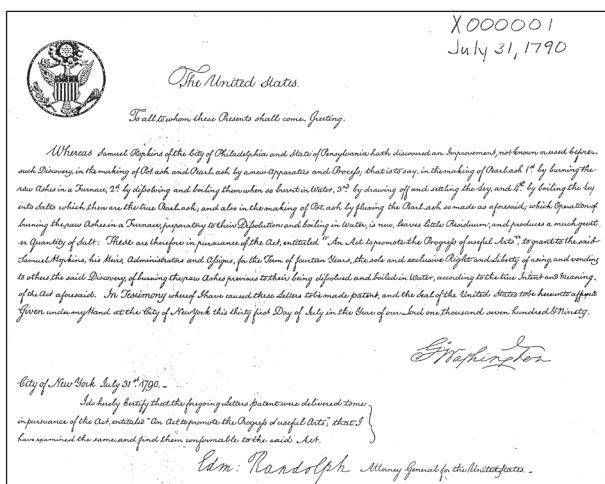 X000001
July 31, 1790
The United States.
To all to whom these Presents shall come. Greeting.
Whereas Samuel Hopkins of the City of Philadelphia and State of Pensylvania hath discovered an Improvement, not known or used before such Discovery, in the making of Pot ash and Pearl ash by a new Apparatus and Process; that is to say, in the making of Pearl ash 1st by burning the
raw Ashes in a Furnace, 2d by dissolving and boiling them when so burnt in Water, 3rd by drawing off and settling the Ley, and 4th by boiling the Ley
into Salts which then are the true Pearl ash; and also in the making of Pot ash by fluxing the Pearl ash so made as aforesaid; which Operation of
burning the raw Ashes in a Furnace, preparatory to their Dissolution and boiling in Water, is new, leaves little Residuum; and produces a much great
er Quantity of Salt: These are therefore in pursuance of the Act, entituled "An Act to promote the Progress of useful Arts", to grant to the said
Samuel Hopkins, his Heirs, Administrators and Assigns, for the Term of fourteen Years, the sole and exclusive Right and Liberty of using, and vending
to others the said Discovery, of burning the raw Ashes previous to their being dissolved and boiled in Water, according to the true Intent and Meaning
of the Act aforesaid. In Testimony whereof I have caused these Letters to be made patent, and the Seal of the United States to be hereunto affixed
Given under my Hand at the City of New York this thirty first Day of July in the Year of our Lord one thousand seven hundred & Ninety.
G. Washington
City of New York July 31st 1790. -
I do hereby Certify that the foregoing Letters patent were delivered to me
in pursuance of the Act, entituled "An Act to promote the Progress of useful Arts"; that I
have examined the same, and find them conformable to the said Act.
Edm: Randolph Attorney General for the United States. -